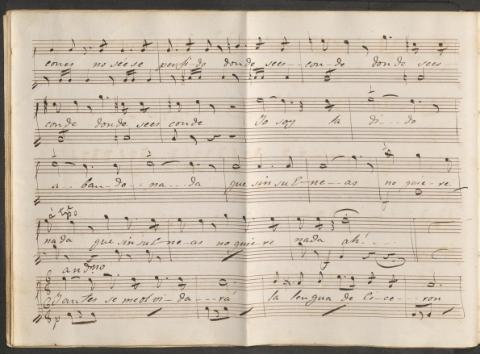 cones no se ese donde se es - con - de donde se es
conde donde se es conde Yo soy la di - - do
a - ban - do - na - - da que sin su E - ne - as no quie - re
à tempo
nada que sin su E - ne - as no quie - re nada ah!
andno
antes se me ol vi - da - - - rá la lengua de Ci - ce - - ron